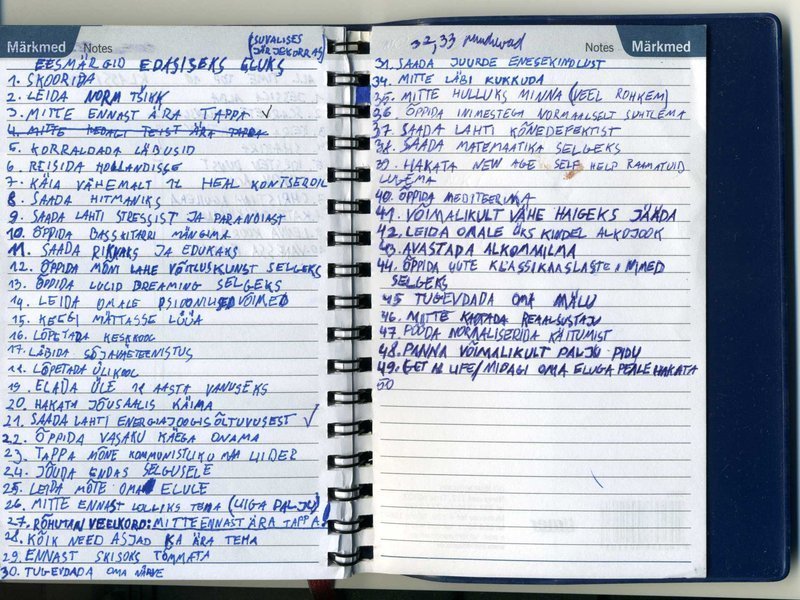 Märkmed Notes
(SUVALISES
JÄRJEKORRAS)
EESMÄRGID EDASISEKS ELUKS
1. SKOORIDA
2. LEIDA NORM TŠIKK
3. MITTE ENNAST ÄRA TAPPA ✓
4. MITTE KEDAGI TEIST ÄRA TAPPA
5. KORRALDADA LÄBUSID
6. REISIDA HOLLANDISSE
7. KÄIA VÄHEMALT 12 HEAL KONTSERDIL
8. SAADA HITMANIKS
9. SAADA LAHTI STRESSIST JA PARANOIAST
10. ÕPPIDA BASSKITARRI MÄNGIMA
11. SAADA RIKKAKS JA EDUKAKS
12. ÕPPIDA MÕNI LAHE VÕITLUSKUNST SELGEKS
13. ÕPPIDA LUCID DREAMING SELGEKS
14. LEIDA OMALE PSIOONILISED VÕIMED
15. KEEGI MÄTTASSE LÜÜA
16. LÕPETADA KESKKOOL
17. LÄBIDA SÕJAVÄETEENISTUS
18. LÕPETADA ÜLIKOOL
19. ELADA ÜLE 18 AASTA VANUSEKS
20. HAKATA JÕUSAALIS KÄIMA
21. SAADA LAHTI ENERGIAJOOGISÕLTUVUSEST ✓
22. ÕPPIDA VASAKU KÄEGA ONAMA
23. TAPPA MÕNE KOMMUNISTLIKU MAA LIIDER
24. JÕUDA ENDAS SELGUSELE
25. LEIDA MÕTE OMA ELULE
26. MITTE ENNAST LOLLIKS TEHA (LIIGA PALJU)
27. RÕHUTAN VEELKORD: MITTE ENNAST ÄRA TAPPA
28. KÕIK NEED ASJAD KA ÄRA TEHA
29. ENNAST SKISOKS TÕMMATA
30. TUGEVDADA OMA NÄRVE
Notes Märkmed
32, 33 puuduvad
31. SAADA JUURDE ENESEKINDLUST
34. MITTE LÄBI KUKKUDA
35. MITTE HULLUKS MINNA (VEEL ROHKEM)
36. ÕPPIDA INIMESTEGA NORMAALSELT SUHTLEMA
37. SAADA LAHTI KÕNEDEFEKTIST
38. SAADA MATEMAATIKA SELGEKS
39. HAKATA NEW AGE SELF HELP RAAMATUID
LUGEMA
40. ÕPPIDA MEDITEERIMA
41. VÕIMALIKULT VÄHE HAIGEKS JÄÄDA
42. LEIDA OMALE ÜKS KINDEL ALKOJOOK
43. AVASTADA ALKOMAAILMA
44. ÕPPIDA UUTE KLASSIKAASLASTE NIMED
SELGEKS
45 TUGEVDADA OMA MÄLU
46. MITTE KAOTADA REAALSUSTAJU
47 PÜÜDA NORMALISEERIDA KÄITUMIST
48. PANNA VÕIMALIKULT PALJU PIDU
49. GET A LIFE/MIDAGI OMA ELUGA PEALE HAKATA
50